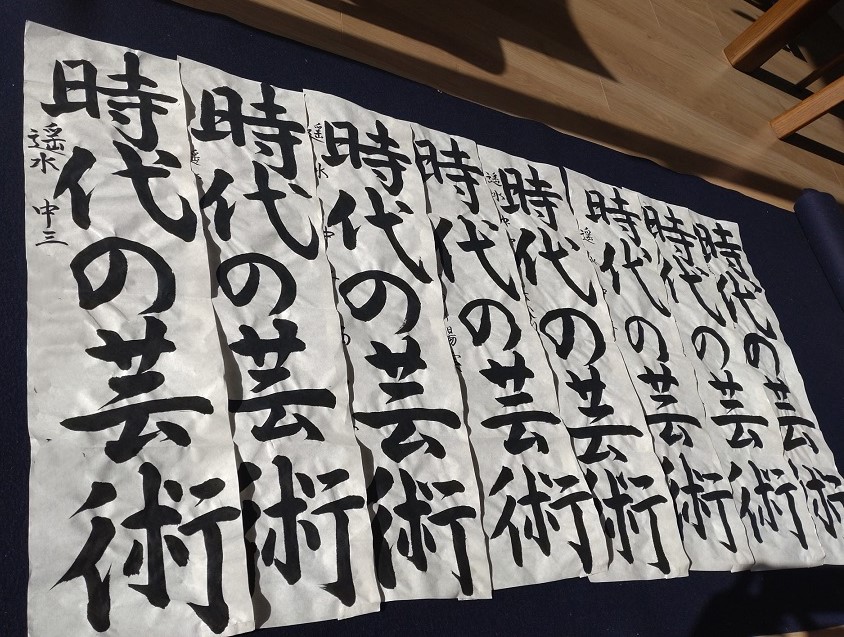 時代の芸術
遥水 中三
時代の芸術
時代の芸術
遥水
時代の芸術
時代の芸術
遥水
時代の芸術
遥
時代の芸術
時代の芸術